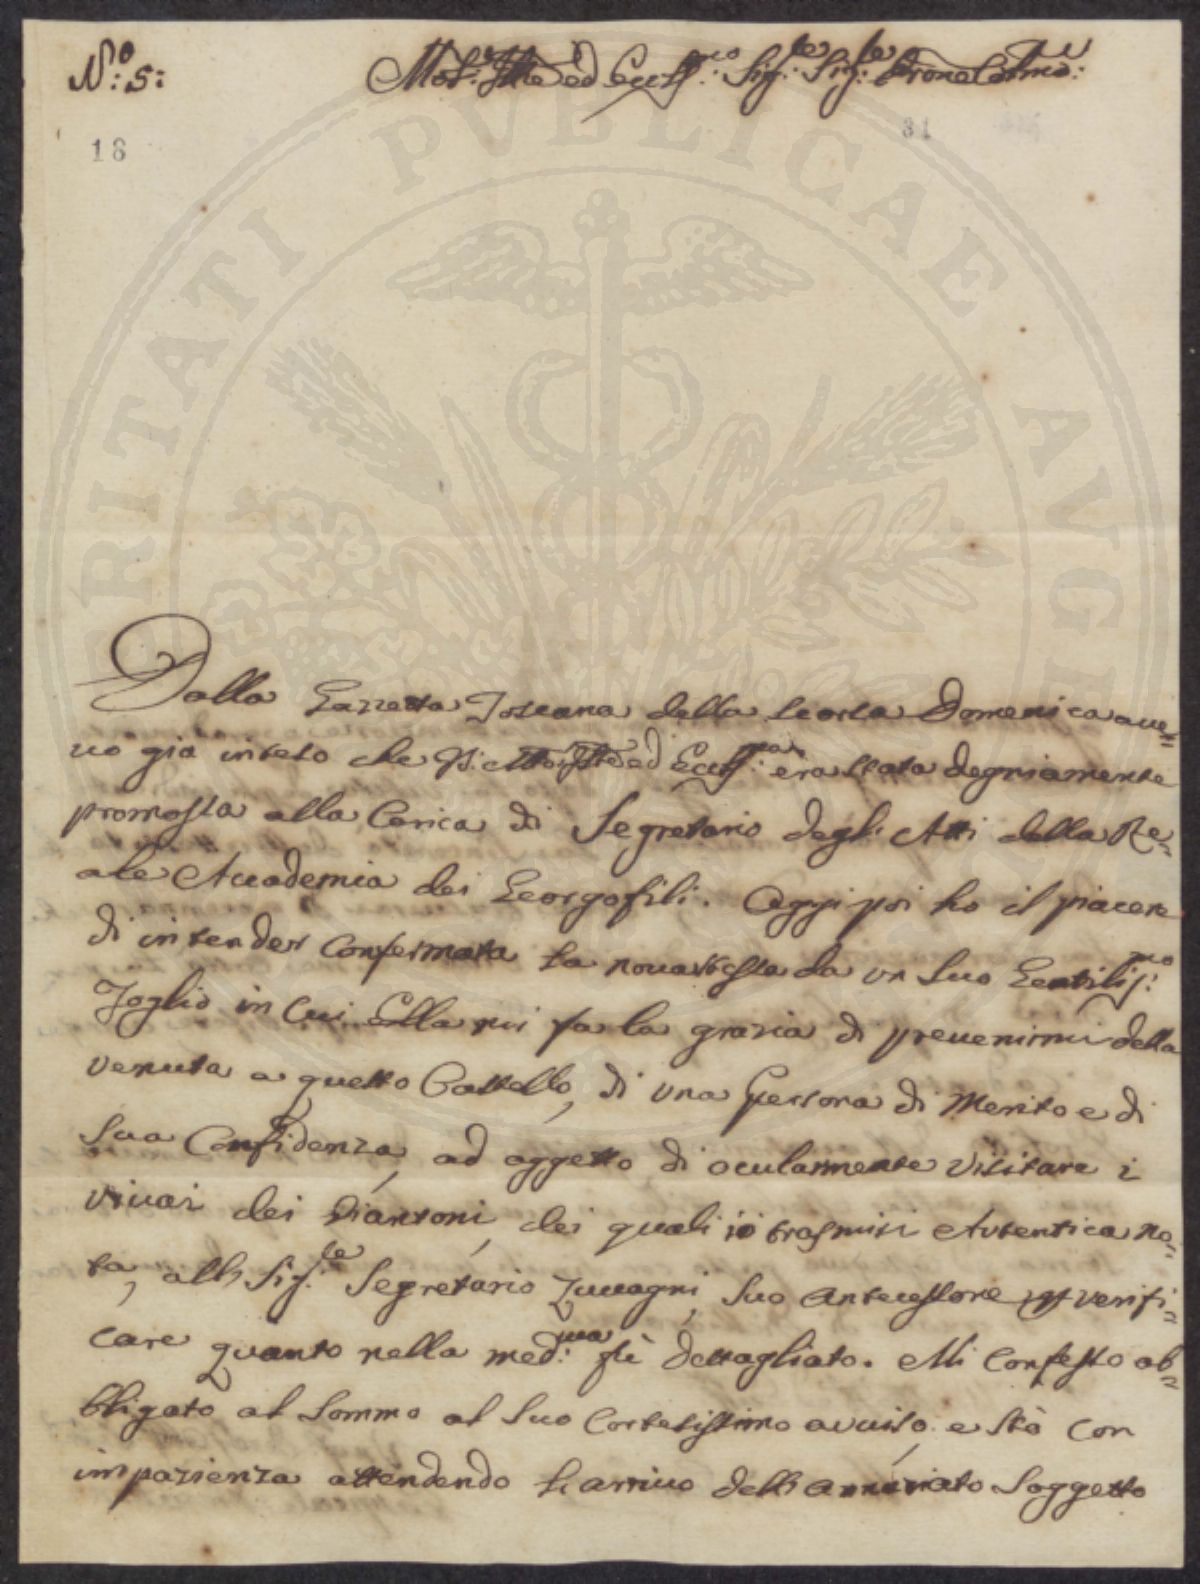 N.o 5:
Mol: Ille ed Ecc.mo Sig.re Sig.re Prone Colmo:
18
31
PROSPERITATI PUBLICAE AUGE
Dalla Gazzetta Toscana della scorsa Domenica ave=
vo già inteso che V: S: Illma ed Ecc.ma era stata degniamente
promossa alla Carica di Segretario degli Atti della Re=
ale Accademia dei Georgofili. Oggi poi ho il piacere
di intender Confermata la nova stessa da un Suo Gentilis.mo
Foglio in Cui Ella mi fa la grazia di prevenirmi della
venuta a questo Castello, di una Persona di Merito e di
Sua Confidenza, ad oggetto di ocularmente Visitare i
vivai dei Piantoni, dei quali io trasmisi Autentica no=
ta, all Sig.re Segretario Zuccagni, Suo Antecessore per verifi=
care quanto nella med.ma fù dettagliato. Mi Confesso ob=
bligato al Sommo al Suo Cortesissimo avviso, e Stò Con
impazienza attendendo l'arrivo dell'annunziato Soggetto